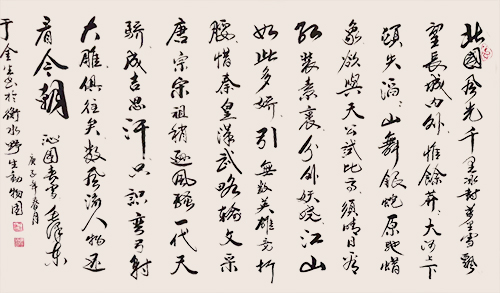 北國風光千里冰封萬里雪飄
望長城內外惟餘莽莽大河上下
頓失滔滔山舞銀蛇原馳蜡
象欲與天公試比高須晴日看
紅裝素裹分外妖嬈江山
如此多嬌引無數英雄競折
腰惜秦皇漢武略輸文采
唐宗宋祖稍遜風騷一代天
驕成吉思汗只識彎弓射
大雕俱往矣數風流人物還
看今朝 沁園春雪毛澤東
庚子年春月
于金生书於衡水野生動物園